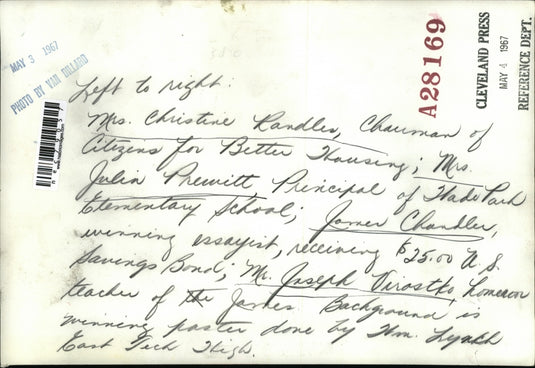 MAY 3 1967
PHOTO BY VAN DILLARD
A28169
CLEVELAND PRESS
MAY 4 1967
REFERENCE DEPT.
Left to right:
Mrs. Christine Randles, Chairman of
Citizens for Better Housing; Mrs.
Julia Prewitt, Principal of Wade Park
Elementary School; James Chandler,
winning essayist, receiving $25.00 U.S.
Savings Bond; Mr. Joseph Virostko, homeroom
teacher of James. Background is
winning poster done by Wm. Lynch
East Tech High.